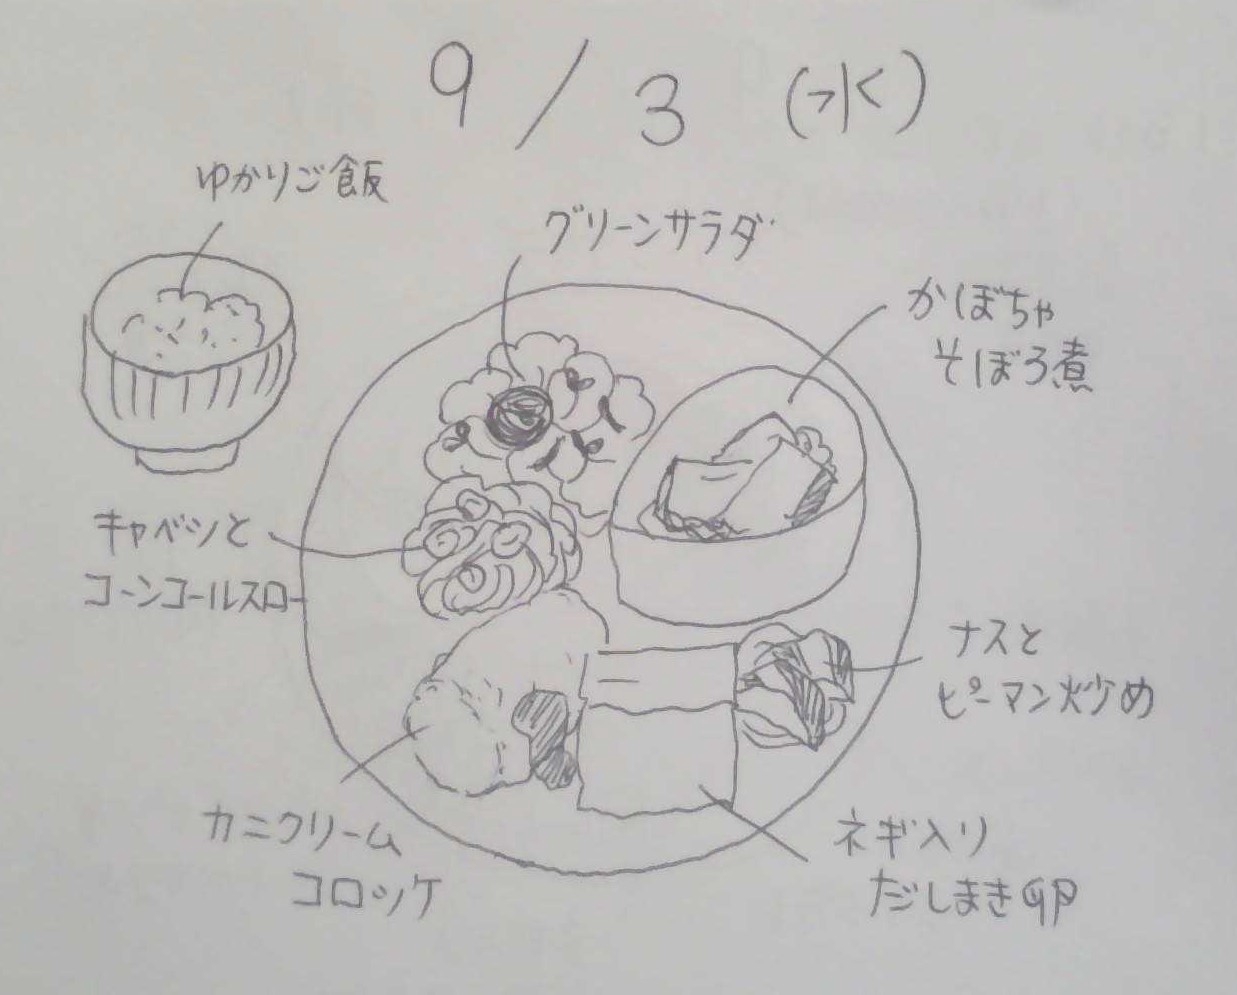 9/3 (水)
ゆかりご飯
グリーンサラダ
かぼちゃ
そぼろ煮
キャベツと
コーンコールスロー
ナスと
ピーマン炒め
カニクリーム
コロッケ
ネギ入り
だしまき卵